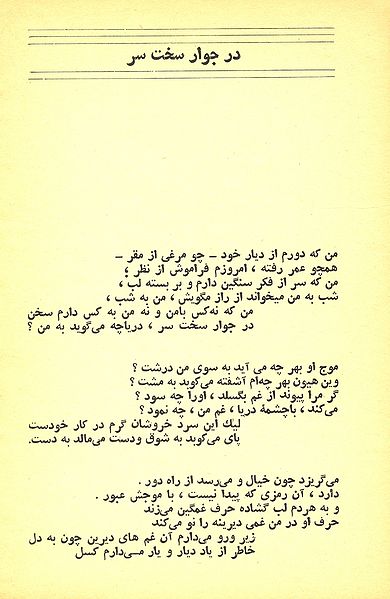 در جوار سخت سر
من که دورم از دیار خود – چو مرغی از مقر –
همچو عمر رفته ، امروزم فراموش از نظر ،
من که سر از فکر سنگین دارم و بر بسته لب ،
شب به من میخواند از راز مگویش ، من به شب ،
من که نه‌کس بامن و نه من به کس دارم سخن
در جوار سخت سر ، دریاچه می‌گوید به من ؟
موج او بهر چه می آید به سوی من درشت ؟
وین هیون بهر چه‌ام آشفته می‌کوبد به مشت ؟
گر مرا پیوند از غم بگسلد ، اورا چه سود ؟
می‌کند ، باچشمهٔ دریا ، غم من ، چه نمود ؟
لیك این سرد خروشان گرم در کار خودست
پای می‌کوبد به شوق ودست می‌مالد به دست.
می‌گریزد چون خیال و می‌رسد از راه دور .
دارد ، آن رمزی که پیدا نیست ، با موجش عبور .
و به هردم لب گشاده حرف غمگین می‌زند
حرف او در من غمی دیرینه را نو می‌کند
زیر ورو می‌دارم آن غم های دیرین چون به دل
خاطر از یاد دیار و یار مـی‌دارم کسل